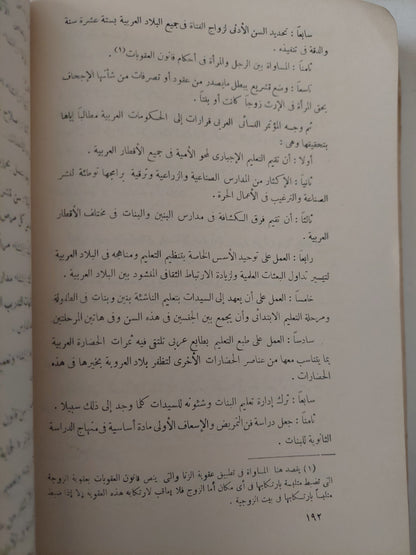 سابعاً : تحديد السن الأدنى لزواج الفتاة فى جميع البلاد العربية بستة عشرة سنة
والدقة فى تنفيذه .
ثامناً : المساواة بين الرجل والمرأة فى أحكام قانون العقوبات (١) .
تاسعاً : وضع تشريع يبطل مايصدر من عقود أو تصرفات من شأنها الإجحاف
بحق المرأة فى الإرث زوجاً كانت أو بنتاً .
ثم وجه المؤتمر النسائى العربى قرارات إلى الحكومات العربية مطالباً إياها
بتحقيقها وهى :
أولا : أن تقيم التعليم الإجبارى لمحو الأمية فى جميع الأقطار العربية .
ثانياً : الإكثار من المدارس الصناعية والزراعية وترقية برامجها توطئة لنشر
الصناعة والترغيب فى الأعمال الحرة .
ثالثاً : أن تقيم فرق الكشافة فى مدارس البنين والبنات فى مختلف الأقطار
العربية .
رابعاً : العمل على توحيد الأسس الخاصة بتنظيم التعليم ومناهجه فى البلاد العربية
لتيسير تداول البعثات العلمية ولزيادة الارتباط الثقافى المنشود بين البلاد العربية .
خامساً : العمل على أن يعهد إلى السيدات بتعليم الناشئة بنين وبنات فى الطفولة
ومرحلة التعليم الابتدائى وأن يجمع بين الجنسين فى هذه السن وفى هاتين المرحلتين
سادساً : العمل على طبع التعليم بطابع عربى تلتقى فيه ثمرات الحضارة العربية
بما يتناسب معها من عناصر الحضارات الأخرى لتظفر بلاد العروبة بخيرها فى هذه
الحضارات .
سابعاً : ترك إدارة تعليم البنات وشئونه للسيدات كلما وجد إلى ذلك سبيلا .
ثامناً : جعل دراسة فن التمريض والإسعاف الأولى مادة أساسية فى منهاج الدراسة
الثانوية للبنات .
(١) يقصد هنا المساواة فى تطبيق عقوبة الزنا والتى ينص قانون العقوبات بعقوبة الزوجة
التى تضبط متلبسة بارتكابها فى أى مكان أما الزوج فلا يعاقب لارتكابه هذه العقوبة إلا إذا ضبط
متلبساً بارتكابها فى بيت الزوجية .
١٩٢